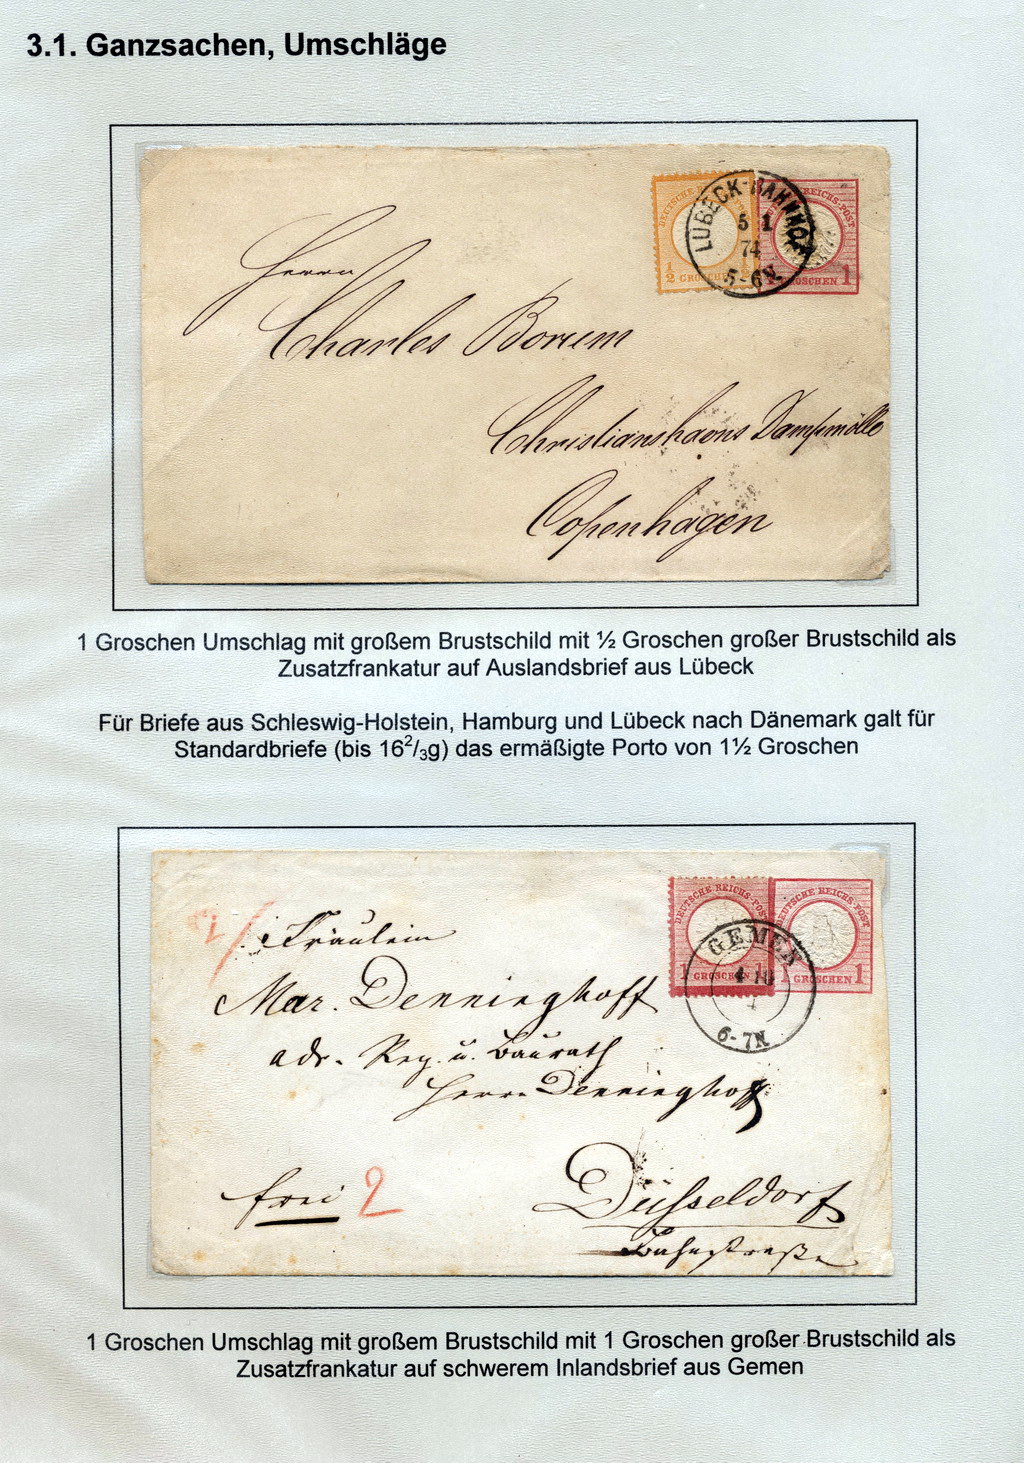 3.1. Ganzsachen, Umschläge
DEUTSCHE REICHS-POST
½ GROSCHEN
REICHS-POST
GROSCHEN 1
LÜBECK-BAHNHOF
5 1
74
5-6N.
Herrn
Charles Borum
Christianshavns Dampmölle
Copenhagen
1 Groschen Umschlag mit großem Brustschild mit ½ Groschen großer Brustschild als
Zusatzfrankatur auf Auslandsbrief aus Lübeck
Für Briefe aus Schleswig-Holstein, Hamburg und Lübeck nach Dänemark galt für
Standardbriefe (bis 16²/₃g) das ermäßigte Porto von 1½ Groschen
DEUTSCHE REICHS-POST
1 GROSCHEN 1
DEUTSCHE REICHS-POST
1 GROSCHEN 1
GEMEN
4 10
6-7N.
2/
Fräulein
Mar. Denninghoff
adr. Reg. u. Baurath
Herrn Denninghoff
frei 2
Düsseldorf
Bahnstraße
1 Groschen Umschlag mit großem Brustschild mit 1 Groschen großer Brustschild als
Zusatzfrankatur auf schwerem Inlandsbrief aus Gemen